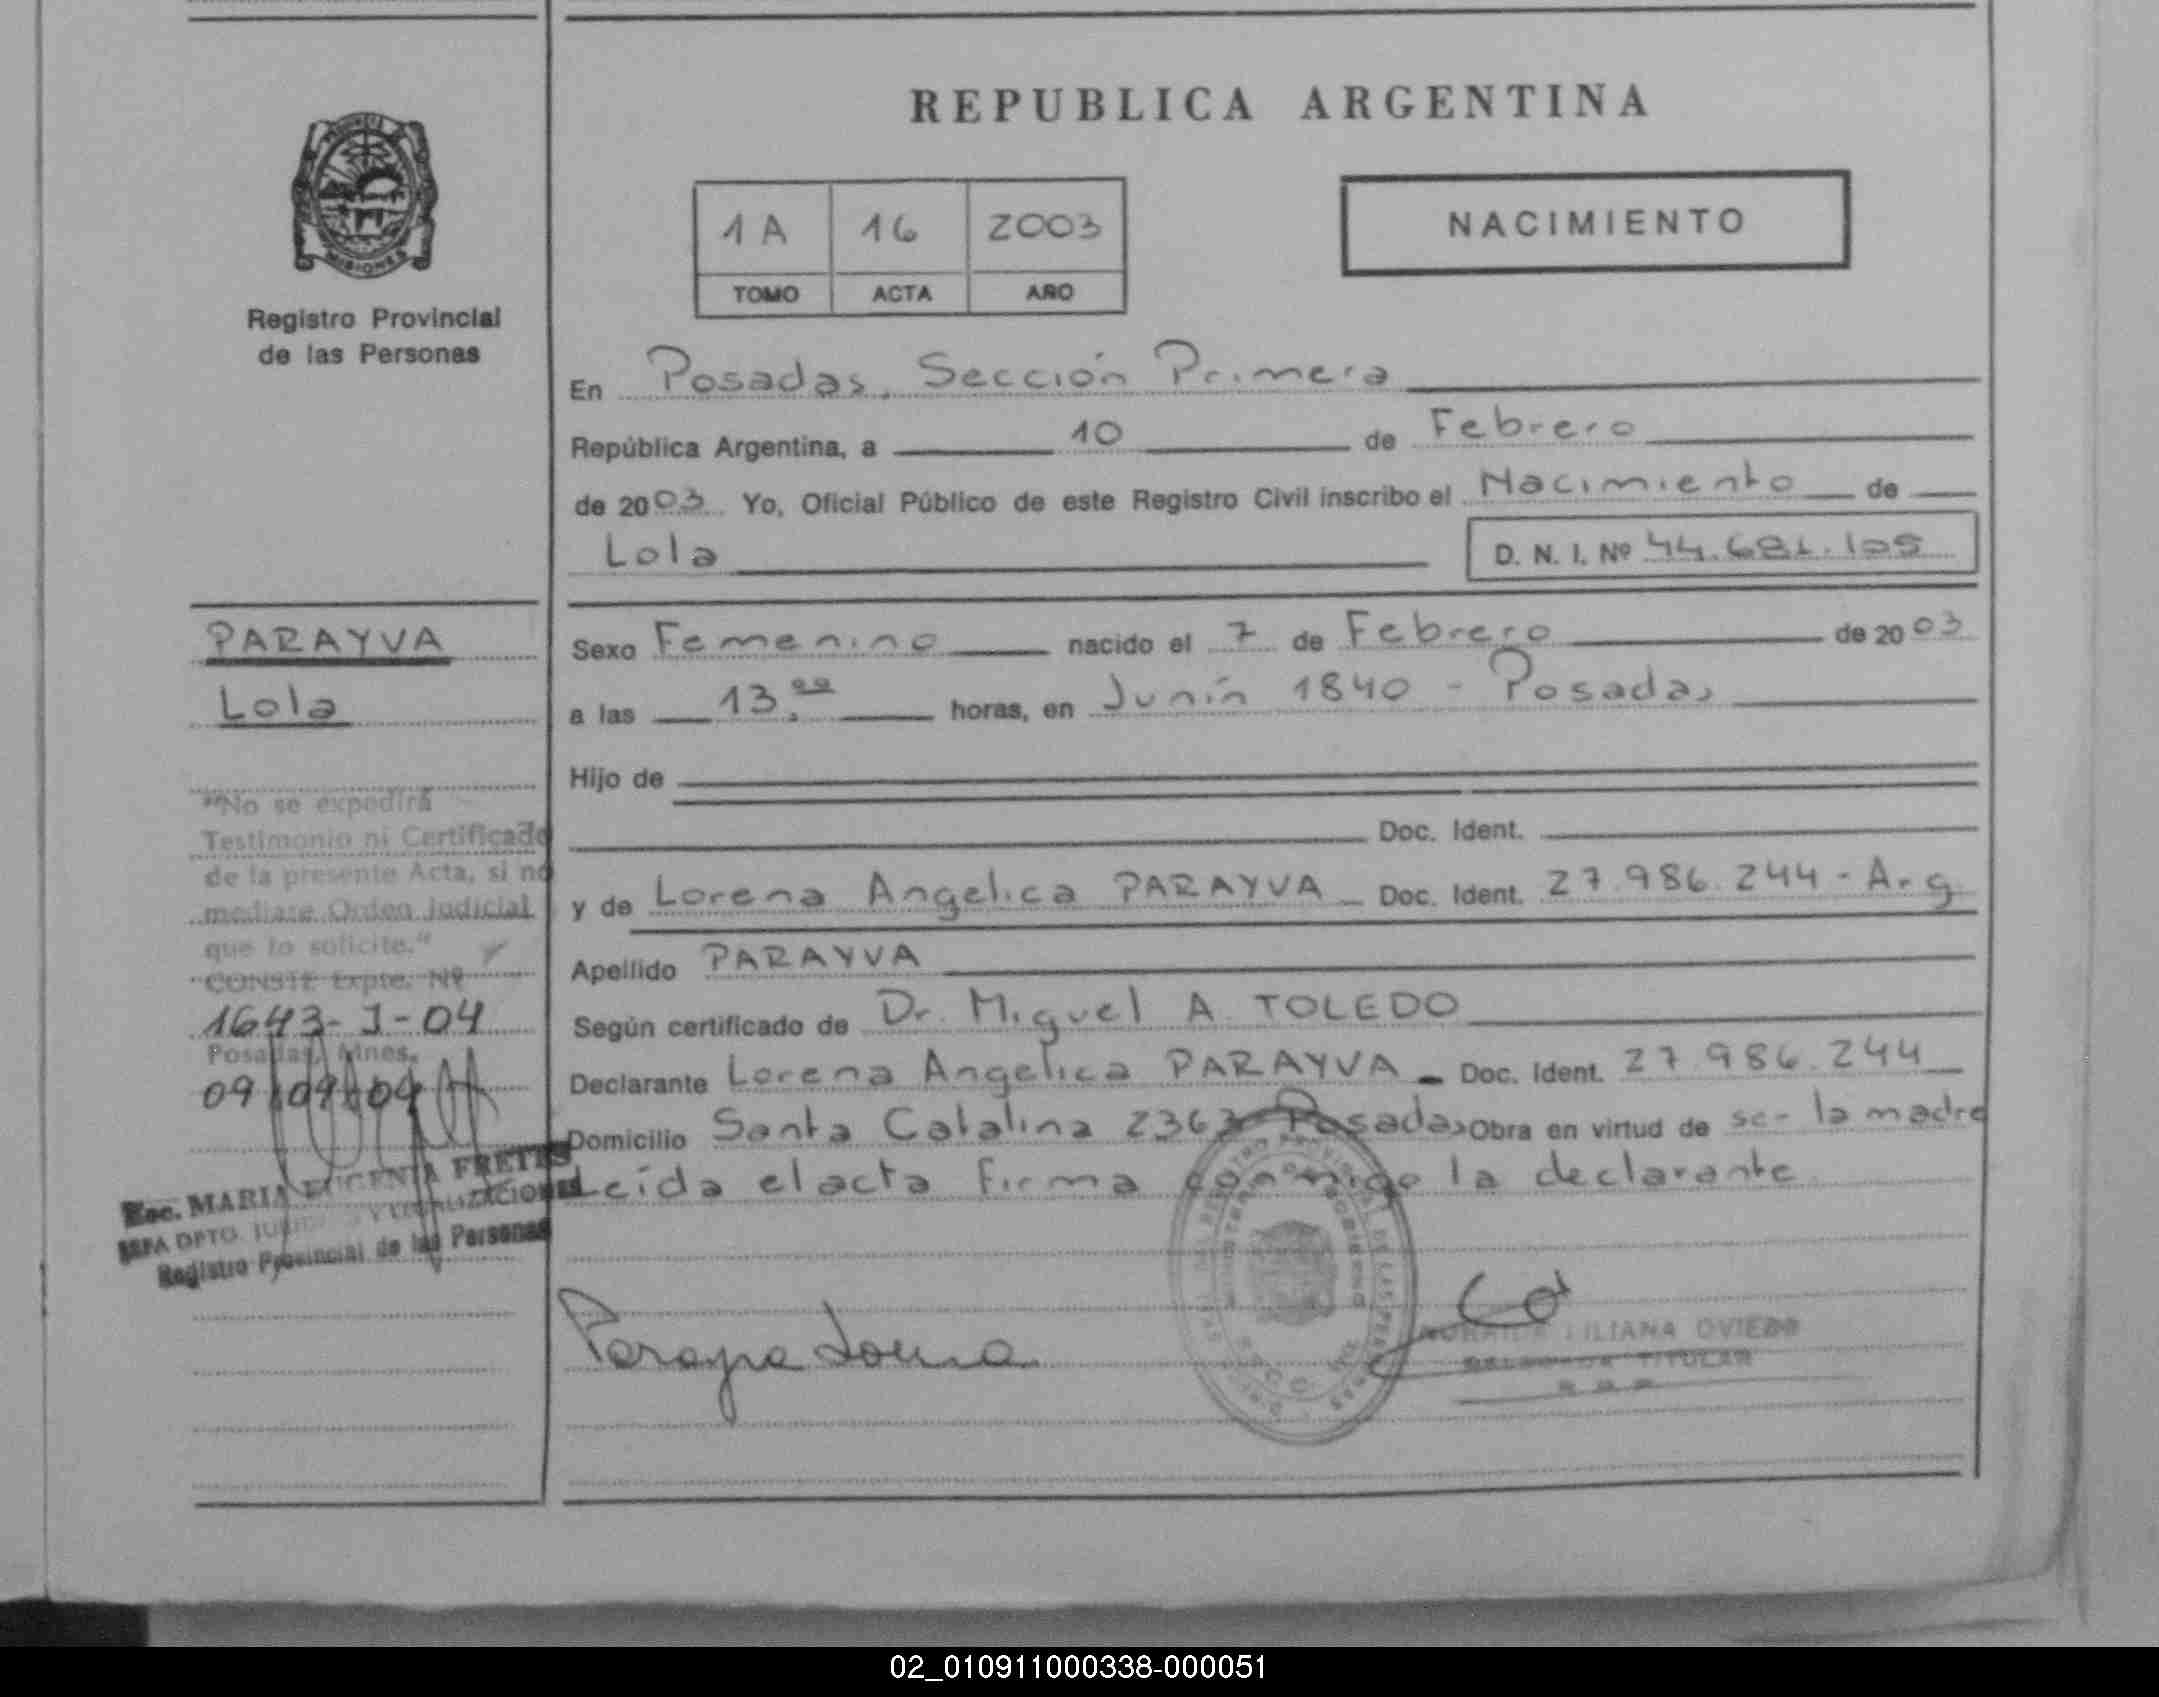 REPUBLICA ARGENTINA
PROVINCIA DE
MISIONES
Registro Provincial
de las Personas
1A 16 2003
TOMO ACTA AÑO
NACIMIENTO
En Posadas, Sección Primera
República Argentina, a 10 de Febrero
de 2003 Yo, Oficial Público de este Registro Civil inscribo el Nacimiento de
Lola D. N. I. Nº
PARAYVA
Lola
Sexo Femenino nacido el 7 de Febrero de 2003
a las 13.00 horas, en Junín 1840 - Posadas
Hijo de
Doc. Ident.
y de Lorena Angelica PARAYVA Doc. Ident. 27.986.244 - Arg
Apellido PARAYVA
Según certificado de Dr. Miguel A. TOLEDO
Declarante Lorena Angelica PARAYVA - Doc. Ident. 27.986.244
Domicilio Santa Catalina 2363 Posadas Obra en virtud de ser la madre
Leída el acta firma conmigo la declarante.
"No se expedirá
Testimonio ni Certificado
de la presente Acta, si no
mediare Orden Judicial
que lo solicite."
CONSTE Expte. Nº
1643-J-04
Posadas, Mnes.
09/09/04
Esc. MARIA EUGENIA FRETES
JEFA DPTO.
Registro Provincial de las Personas
LILIANA OVIEDO
TITULAR
02_010911000338-000051